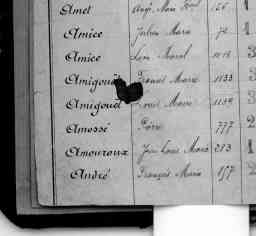 Amet 156 1
Amice Julien Marie 74 1
Amice Marcel 3
Amigoud Marie 1133 3
Amigoud Louis Marie 1139 3
Amossé Pierre 777 2
Amouroux Jean Louis Marie 213 1
André François Marie 177 2